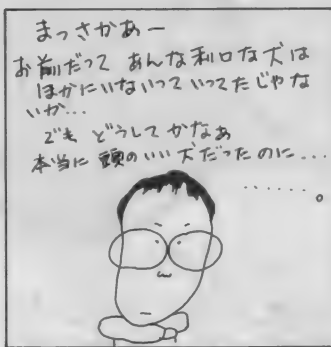 まっさかあー
お前だって あんな利口な犬は
ほかにいないっていってたじゃな
いか...
でも どうしてかなあ
本当に 頭のいい犬だったのに...
.......。